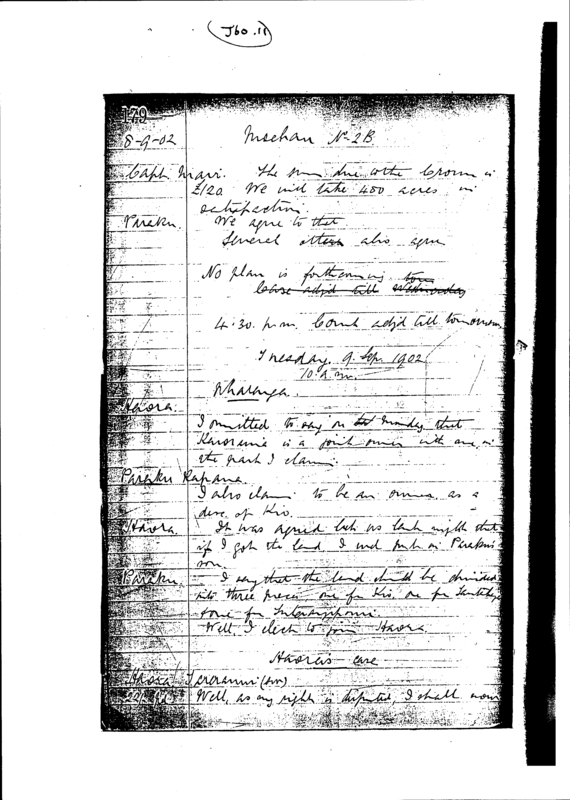 J60.11
179
8-9-02 No 2B
Capt. Mair. The sum due to the Crown is
£120. We will take 400 acres in
satisfaction.
Paraku. We agree to that
Several others also agree
No plan is forthcoming
Case adjd till Wednesday
4.30. p.m. Court adjd till tomorrow
Tuesday, 9. Sep. 1902
10. a.m.
Wharanga.
Haora.
I omitted to say on Monday that
is a joint owner with me in
the part I claim.
Paraku Rapana.
I also claim to be an owner as a
dec. of Kio.
Haora. It was agreed last night that
if I got the land I wd put in Paraku's
son.
Paraku. I say that the land should be divided
into three pieces one for Kio, one for
& one for
Well, I elect to join Haora.
Haora's case
Haora (sworn)
Well, as my right is disputed, I shall now